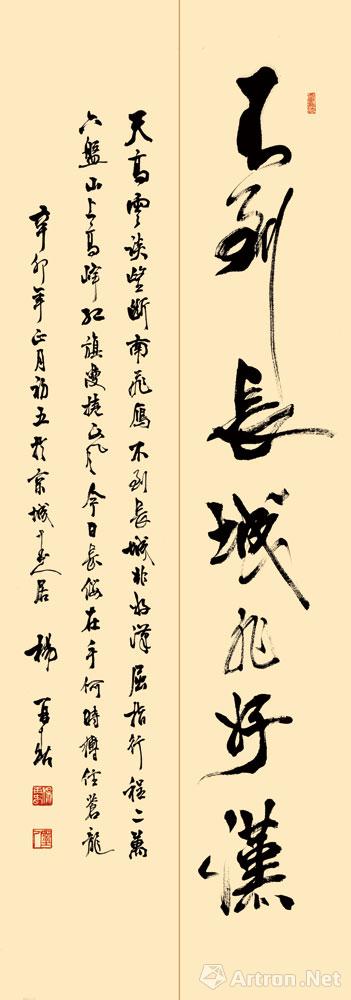 不到長城非好漢
天高雲淡望斷南飛雁不到長城非好漢屈指行程二萬
六盤山上高峰紅旗漫捲西風今日長纓在手何時縛住蒼龍
辛卯年正月初五於京城
居 楊
Artron.Net